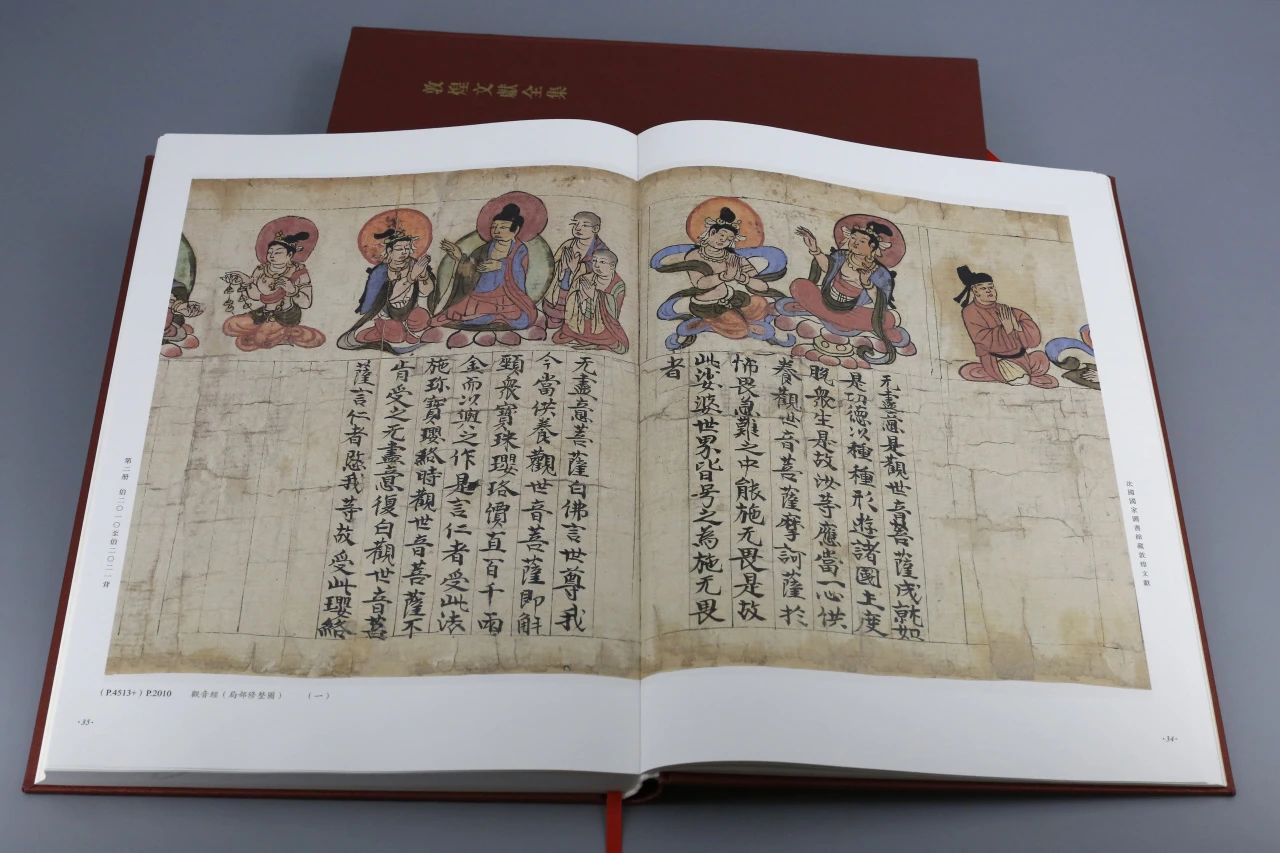 敦煌文獻全集
法國國家圖書館藏敦煌文獻
无盡意是觀世音菩薩成就如
是功德以種種形遊諸國土度
脱衆生是故汝等應當一心供
養觀世音菩薩摩訶薩於
怖畏急難之中能施无畏是故
此娑婆世界皆号之為施无畏
者
·34·
无盡意菩薩白佛言世尊我
今當供養觀世音菩薩即解
頸衆寶珠瓔珞價直百千兩
金而以與之作是言仁者受此法
施珎寶瓔珞時觀世音菩薩不
肯受之无盡意復白觀世音菩
薩言仁者愍我等故受此瓔珞
第二册 伯二〇一〇至伯二〇二一背
（P.4513+）P.2010 觀音經（局部修整圖） （一）
·35·